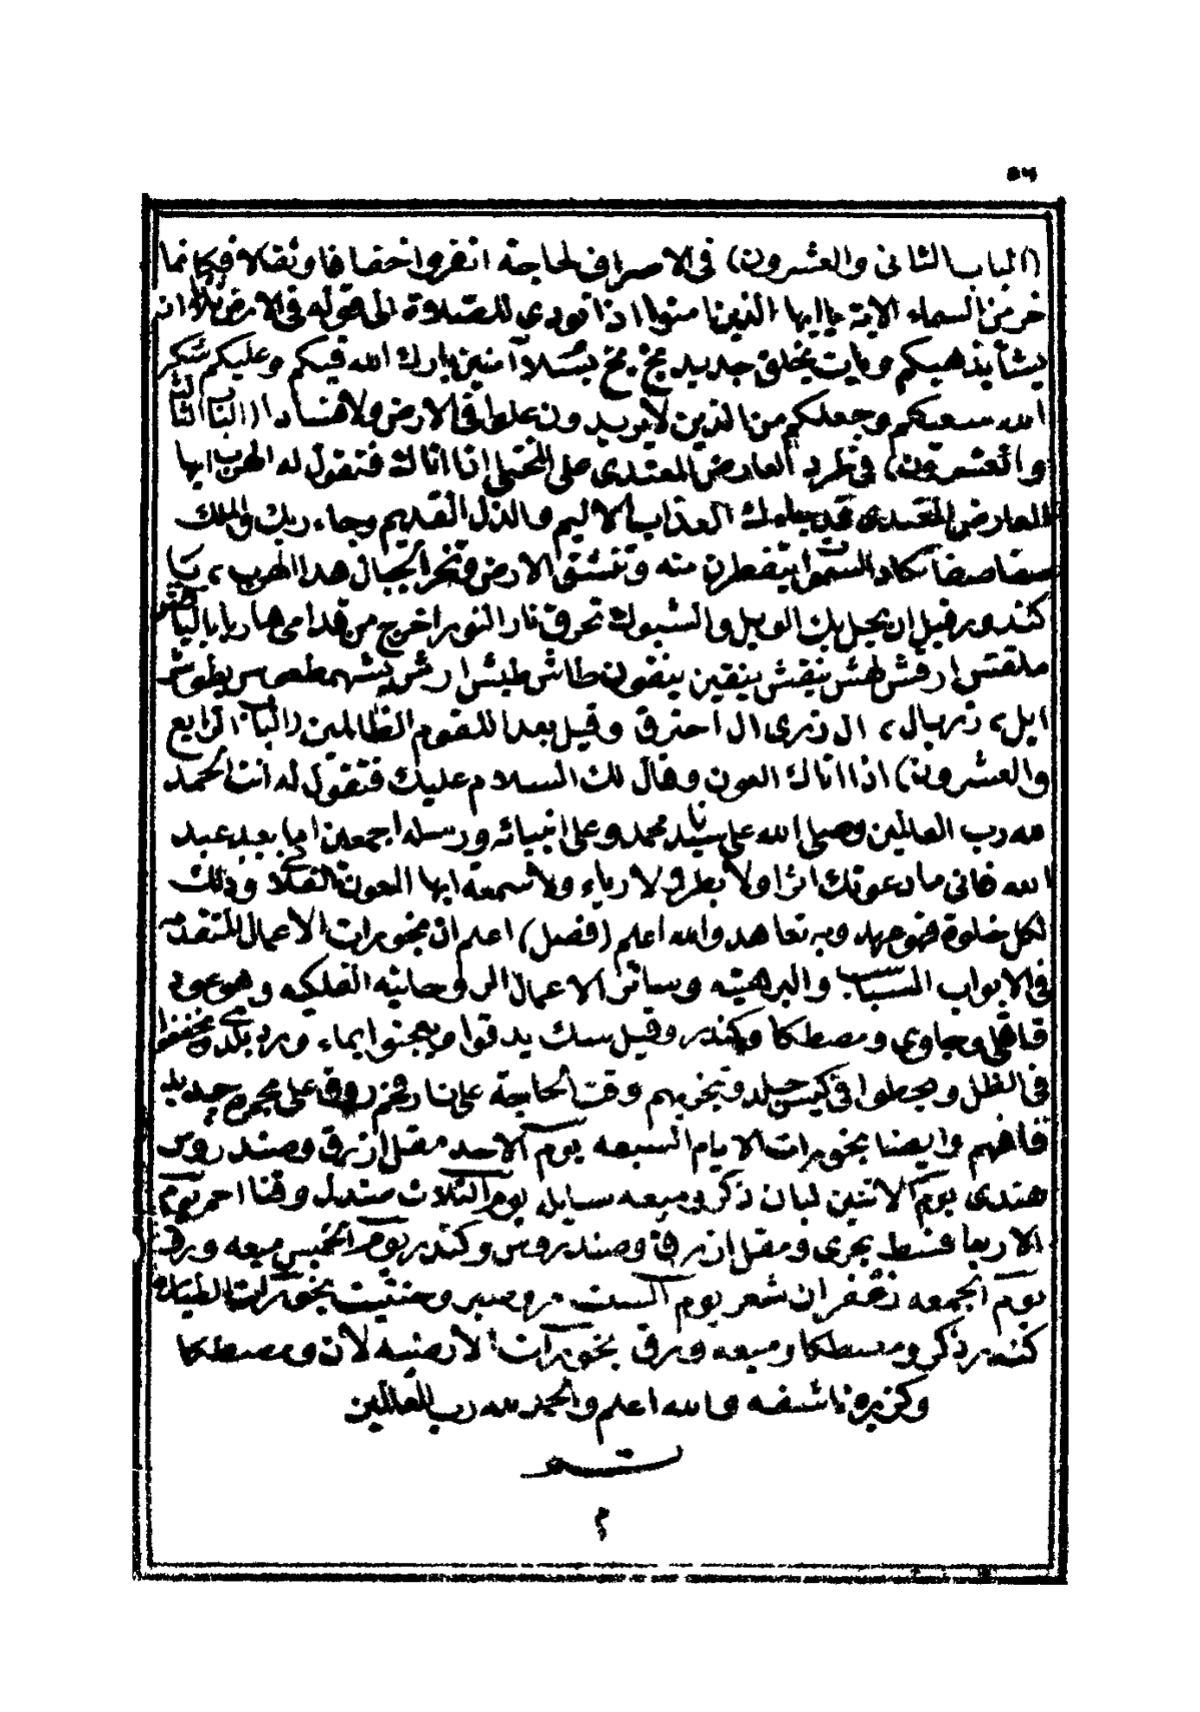 ٥٦
(الباب الثانى والعشرون) فى الاصراف لحاجة انفروا خفافا وثقالا فكانما
خر من السماء الاية يا ايها الذين امنوا اذا نودى للصلاة الى قوله فى الارض ان
يشأ يذهبكم ويات بخلق جديد بسلام آمنين بارك الله فيكم وعليكم شكر
الله سعيكم وجعلكم من الذين لا يريدون علوا فى الارض ولا فسادا (الباب الثالث
والعشرون) فى طرد العارض المعتدى على اذا اتاك فتقول له اهرب ايها
العارض المعتدى العذاب الاليم والذل القديم وجاء ربك والملك
صفا صفا تكاد السموات يتفطرن منه وتنشق الارض وتخر الجبال هدا اهرب، يا
قبل ان يحل بك الويل تحرق نار النور اخرج من قدامى هاربا
ارقش نيقش ينقين ينقون طاش طيش ارش
ايل، ال احترق وقيل بعدا للقوم الظالمين (الباب الرابع
والعشرون) اذا اتاك العون وقال لك السلام عليك فتقول له انت الحمد
لله رب العالمين وصلى الله على سيدنا محمد وعلى انبيائه ورسله اجمعين اما بعد عبد
الله فانى ما دعوتك اثرا ولا بطرا لا رياء ولا سمعة ايها العون وذلك
لكل خلوة وبه تعاهد والله اعلم (فصل) اعلم ان بخورات الاعمال المتقدمة
فى الابواب والبرهتيه وسائر الاعمال الروحانيه الفلكيه وهو عود
قاقلى وجاوى ومصطكا وكندر يدقوا ويعجنوا بماء ورد
فى الظل ويجعلوا فى كيس جلد وتبخر بهم وقت الحاجة على نار فحم على جديد
فافهم وايضا بخورات الايام السبعه يوم الاحد مقل ازرق وصندروس
هندى يوم الاثنين لبان ذكر وميعه سايله يوم الثلاث صندل احمر يوم
الاربعا قسط بحرى ومقل ازرق وصندروس وكندر يوم الخميس ميعه
يوم الجمعه زعفران شعر يوم السبت مر وصبر وحنتيت بخورات الطياره
كندر ذكر ومسطكا وميعه بخورات الارضيه لادن ومصطكا
وكزبره ناشفه والله اعلم والحمد لله رب العالمين
تم
م